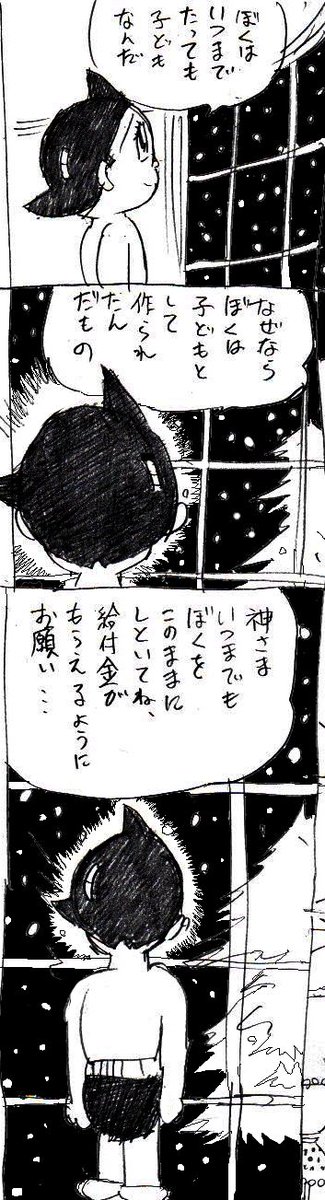 ぼくは
いつまで
たっても
子ども
なんだ
なぜなら
ぼくは
子どもと
して
作られ
たん
だもの
神さま
いつまでも
ぼくを
このままに
しといてね、
給付金が
もらえるように
お願い…